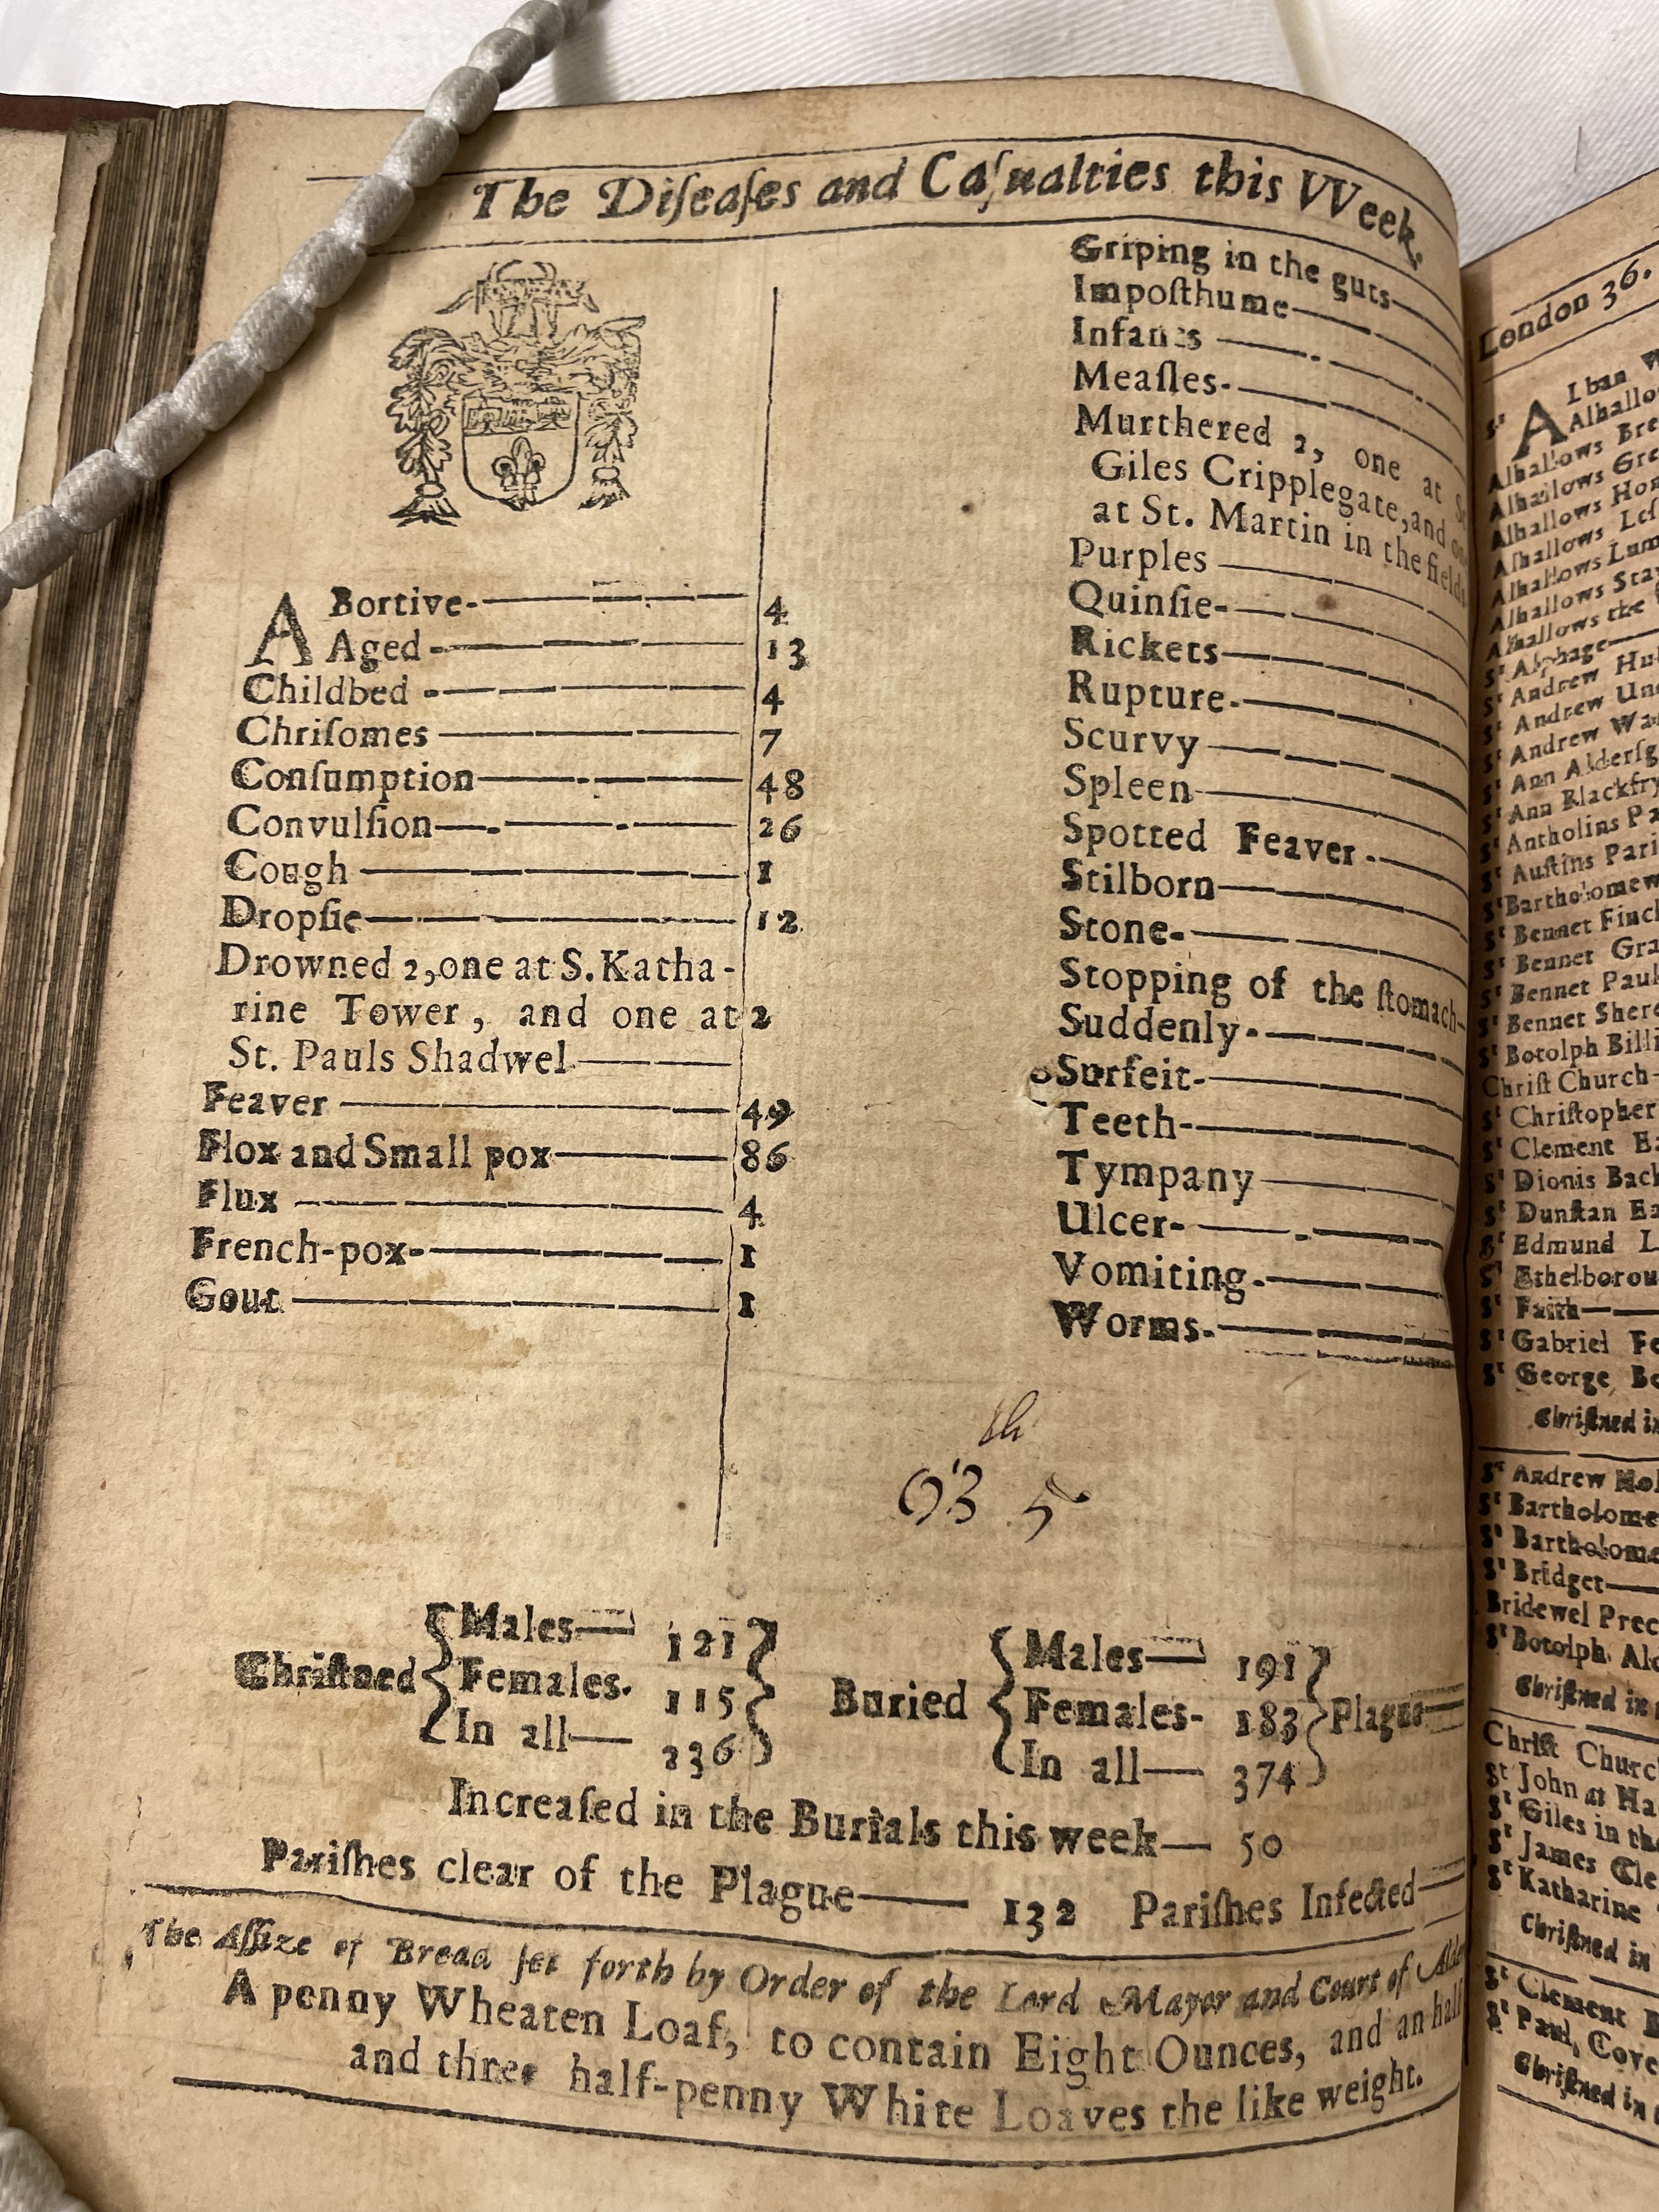 The Diſeaſes and Caſualties this VVeek.
ABortive- 4
Aged 13
Childbed 4
Chriſomes 7
Conſumption 48
Convulſion 26
Cough 1
Dropſie 12
Drowned 2, one at S. Katha-
rine Tower, and one at 2
St. Pauls Shadwel
Feaver 49
Flox and Small pox 86
Flux 4
French-pox 1
Gout 1
Griping in the guts
Impoſthume
Infants
Meaſles
Murthered 2, one at
Giles Cripplegate, and
at St. Martin in the fields
Purples
Quinſie
Rickets
Rupture
Scurvy
Spleen
Spotted Feaver
Stilborn
Stone
Stopping of the ſtomach
Suddenly
Surfeit
Teeth
Tympany
Ulcer
Vomiting
Worms
th
93 5
Chriſtned { Males 121
Females. 115
In all 236 }
Buried { Males 191
Females 183
In all 374 } Plague
Increaſed in the Burials this week 50
Pariſhes clear of the Plague 132 Pariſhes Infected
The Aſſize of Bread ſet forth by Order of the Lord Mayor and Court of
A penny Wheaten Loaf, to contain Eight Ounces, and an half
and three half-penny White Loaves the like weight.
London 36.
Alhallows
Alhallows
Alhallows
Alhallows
Alhallows
Alhallows
Alhallows the
St Alphage
St Andrew
St Andrew
St Andrew
St Ann
St Ann
St Antholins
St Auſtins
St Bartholomew
St Bennet
St Bennet
St Bennet
St Bennet
St Botolph
Chriſt Church
St Chriſtopher
St Clement
St Dionis
St Dunſtan
St Edmund
St
St Faith
St Gabriel
St George
Chriſtned in
St Andrew
St
St
St Bridget
Bridewel
St Botolph
Chriſtned in
Chriſt Church
St John at
St Giles in the
St James
St Katharine
Chriſtned in
St Clement
St Paul
Chriſtned in